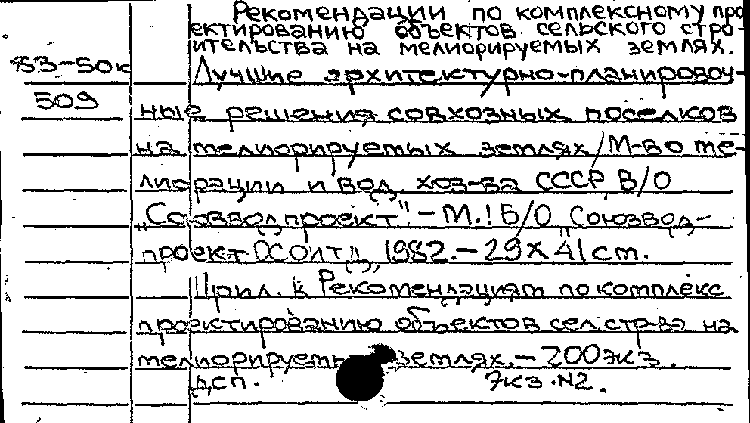 Рекомендации по комплексному про
ектированию объектов сельского стро-
ительства на мелиорируемых землях.
83-50к Лучшие архитектурно-планировоч-
509 ные решения совхозных поселков
на мелиорируемых землях/М-во ме-
лиорации и вод. хоз-ва СССР, В/О
"Союзводпроект".-М.: Б/О "Союзвод-
проект", 1982.-29х41 см.
Прил. к Рекомендациям по комплекс
проектированию объектов сел. стр-ва на
мелиорируем землях.-200экз.
ДСП. Экз.N2.